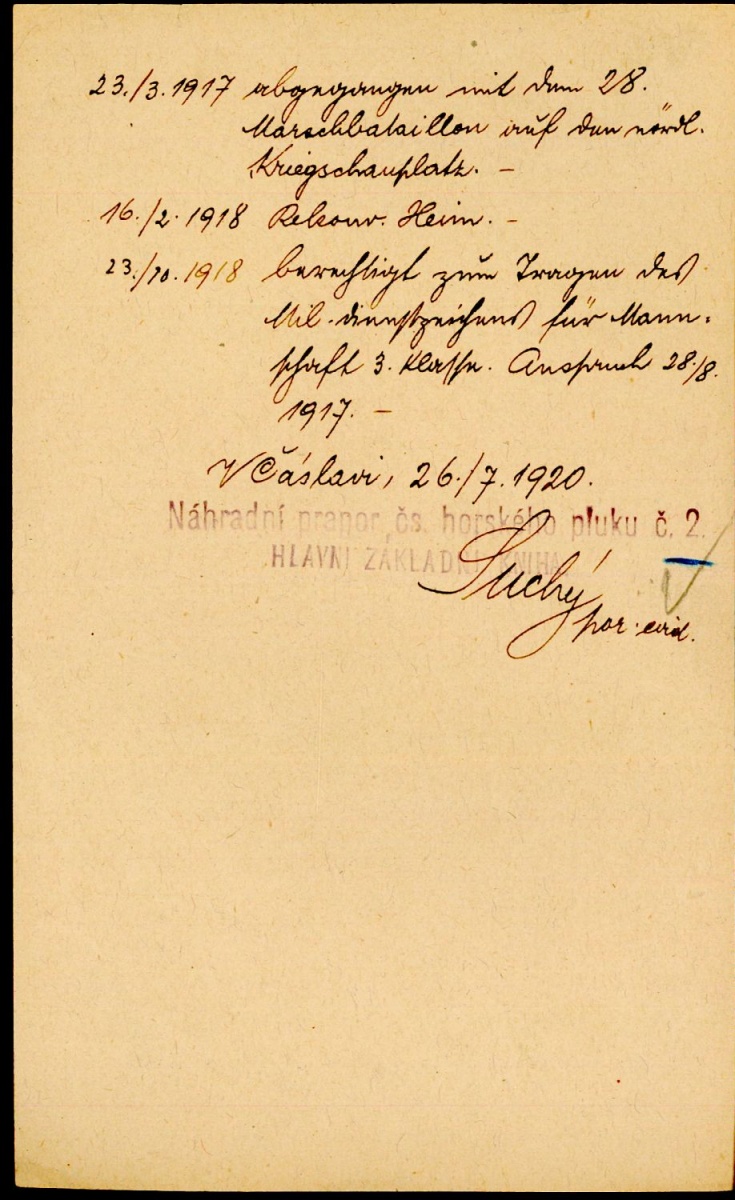 23./3.1917 abgegangen mit dem 28.
Marschbataillon auf den nördl.
Kriegschauplatz. –
16./2.1918 Rekonv. Heim. –
23./10.1918 berechtigt zum Tragen des
Mil. dienstzeichens für Mann-
schaft 3. Klasse. Anspruch 28./8.
1917. –
V Čáslavi, 26./7.1920.
Náhradní prapor čs. horského pluku č. 2.
HLAVNÍ ZÁKLADNÍ KNIHA.
Suchý
por. evid.